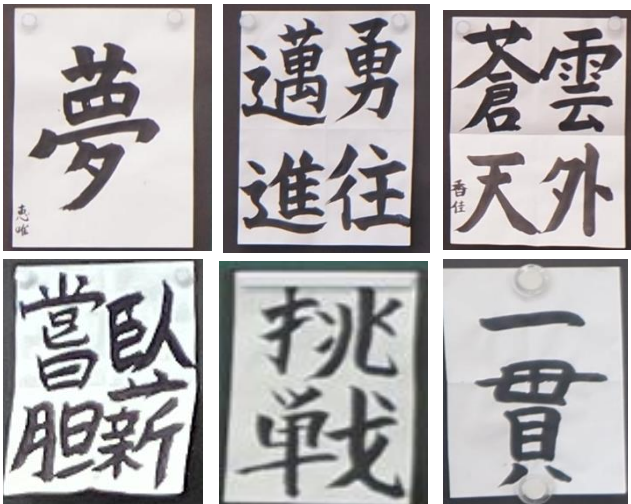 夢
恵唯
勇往
邁進
雲外
蒼天
香佳
臥薪
嘗胆
挑
戦
一貫